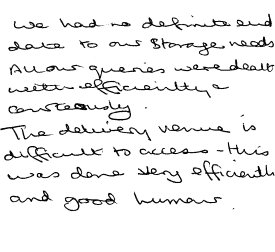 We had no definite end
date to our storage needs
All our queries were dealt
with efficiently &
courteously.
The delivery venue is
difficult to access - this
was done very efficiently
and good humour.